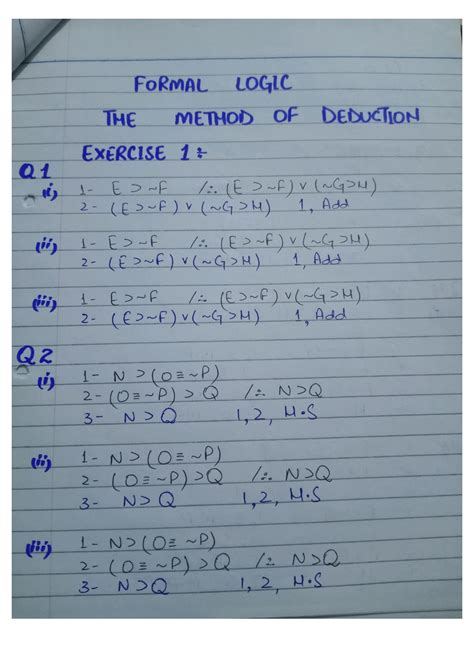 FORMAL LOGIC
THE METHOD OF DEDUCTION
EXERCISE 1:-
Q1
(i) 1- E ⊃ ~F /∴ (E ⊃ ~F) v (~G ⊃ H)
2- (E ⊃ ~F) v (~G ⊃ H) 1, Add
(ii) 1- E ⊃ ~F /∴ (E ⊃ ~F) v (~G ⊃ H)
2- (E ⊃ ~F) v (~G ⊃ H) 1, Add
(iii) 1- E ⊃ ~F /∴ (E ⊃ ~F) v (~G ⊃ H)
2- (E ⊃ ~F) v (~G ⊃ H) 1, Add
Q2
(i) 1- N ⊃ (O ≡ ~P)
2- (O ≡ ~P) ⊃ Q /∴ N ⊃ Q
3- N ⊃ Q 1, 2, H.S
(ii) 1- N ⊃ (O ≡ ~P)
2- (O ≡ ~P) ⊃ Q /∴ N ⊃ Q
3- N ⊃ Q 1, 2, H.S
(iii) 1- N ⊃ (O ≡ ~P)
2- (O ≡ ~P) ⊃ Q /∴ N ⊃ Q
3- N ⊃ Q 1, 2, H.S